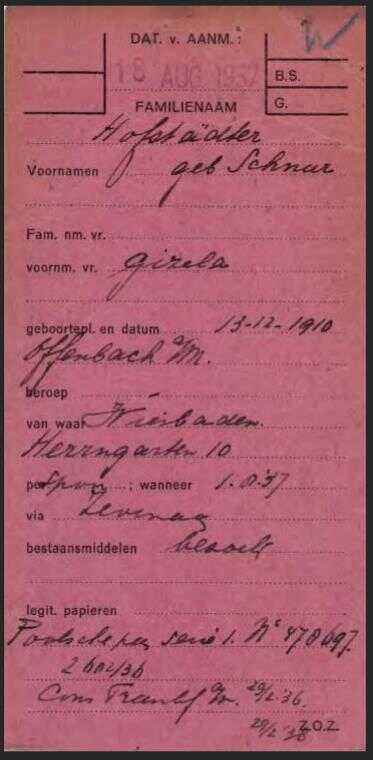 DAT. v. AANM.:
18 AUG 1937
B.S.
G.
FAMILIENAAM
Hofstädter
Voornamen geb Schnur
Fam. nm. vr.
voornm. vr. Gizela
geboortepl. en datum 13-12-1910
Offenbach a/M.
beroep
van waar Wiesbaden.
Herrngarten 10
per Spoor; wanneer 1.8.37
via Zevenaar
bestaansmiddelen bezoek
legit. papieren
Poolsche pas serie 1. No 478697.
Cons Frankf a/M. 29/2.36.
29/2.38 Z.O.Z.